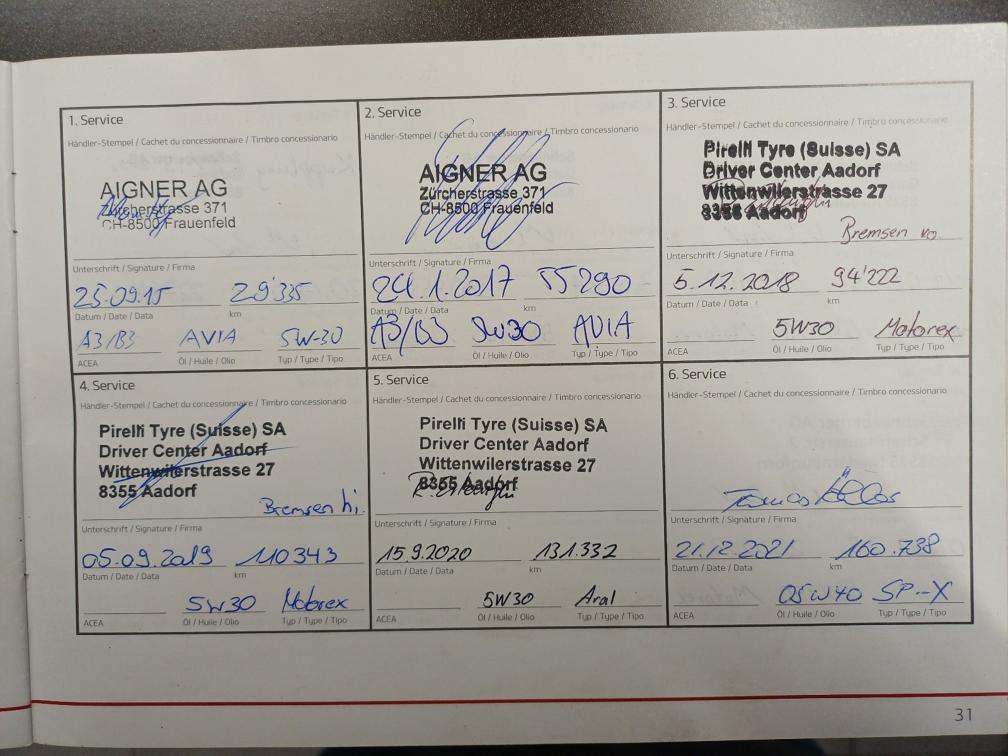 1. Service
Händler-Stempel / Cachet du concessionnaire / Timbro concessionario
AIGNER AG
Zürcherstrasse 371
CH-8500 Frauenfeld
Unterschrift / Signature / Firma
25.09.15 29'335
Datum / Date / Data km
A3/B3 AVIA 5W-30
ACEA Öl / Huile / Olio Typ / Type / Tipo
2. Service
Händler-Stempel / Cachet du concessionnaire / Timbro concessionario
AIGNER AG
Zürcherstrasse 371
CH-8500 Frauenfeld
Unterschrift / Signature / Firma
24.1.2017 55290
Datum / Date / Data km
A3/B3 5W30 AVIA
ACEA Öl / Huile / Olio Typ / Type / Tipo
3. Service
Händler-Stempel / Cachet du concessionnaire / Timbro concessionario
Pirelli Tyre (Suisse) SA
Driver Center Aadorf
Wittenwilerstrasse 27
8355 Aadorf
Bremsen vo.
Unterschrift / Signature / Firma
5.12.2018 94'222
Datum / Date / Data km
5W30 Motorex
ACEA Öl / Huile / Olio Typ / Type / Tipo
4. Service
Händler-Stempel / Cachet du concessionnaire / Timbro concessionario
Pirelli Tyre (Suisse) SA
Driver Center Aadorf
Wittenwilerstrasse 27
8355 Aadorf
Bremsen hi.
Unterschrift / Signature / Firma
05.09.2019 110343
Datum / Date / Data km
5W30 Motorex
ACEA Öl / Huile / Olio Typ / Type / Tipo
5. Service
Händler-Stempel / Cachet du concessionnaire / Timbro concessionario
Pirelli Tyre (Suisse) SA
Driver Center Aadorf
Wittenwilerstrasse 27
8355 Aadorf
Unterschrift / Signature / Firma
15.9.2020 131.332
Datum / Date / Data km
5W30 Aral
ACEA Öl / Huile / Olio Typ / Type / Tipo
6. Service
Händler-Stempel / Cachet du concessionnaire / Timbro concessionario
Unterschrift / Signature / Firma
21.12.2021 160.738
Datum / Date / Data km
05W40 SP-X
ACEA Öl / Huile / Olio Typ / Type / Tipo
31